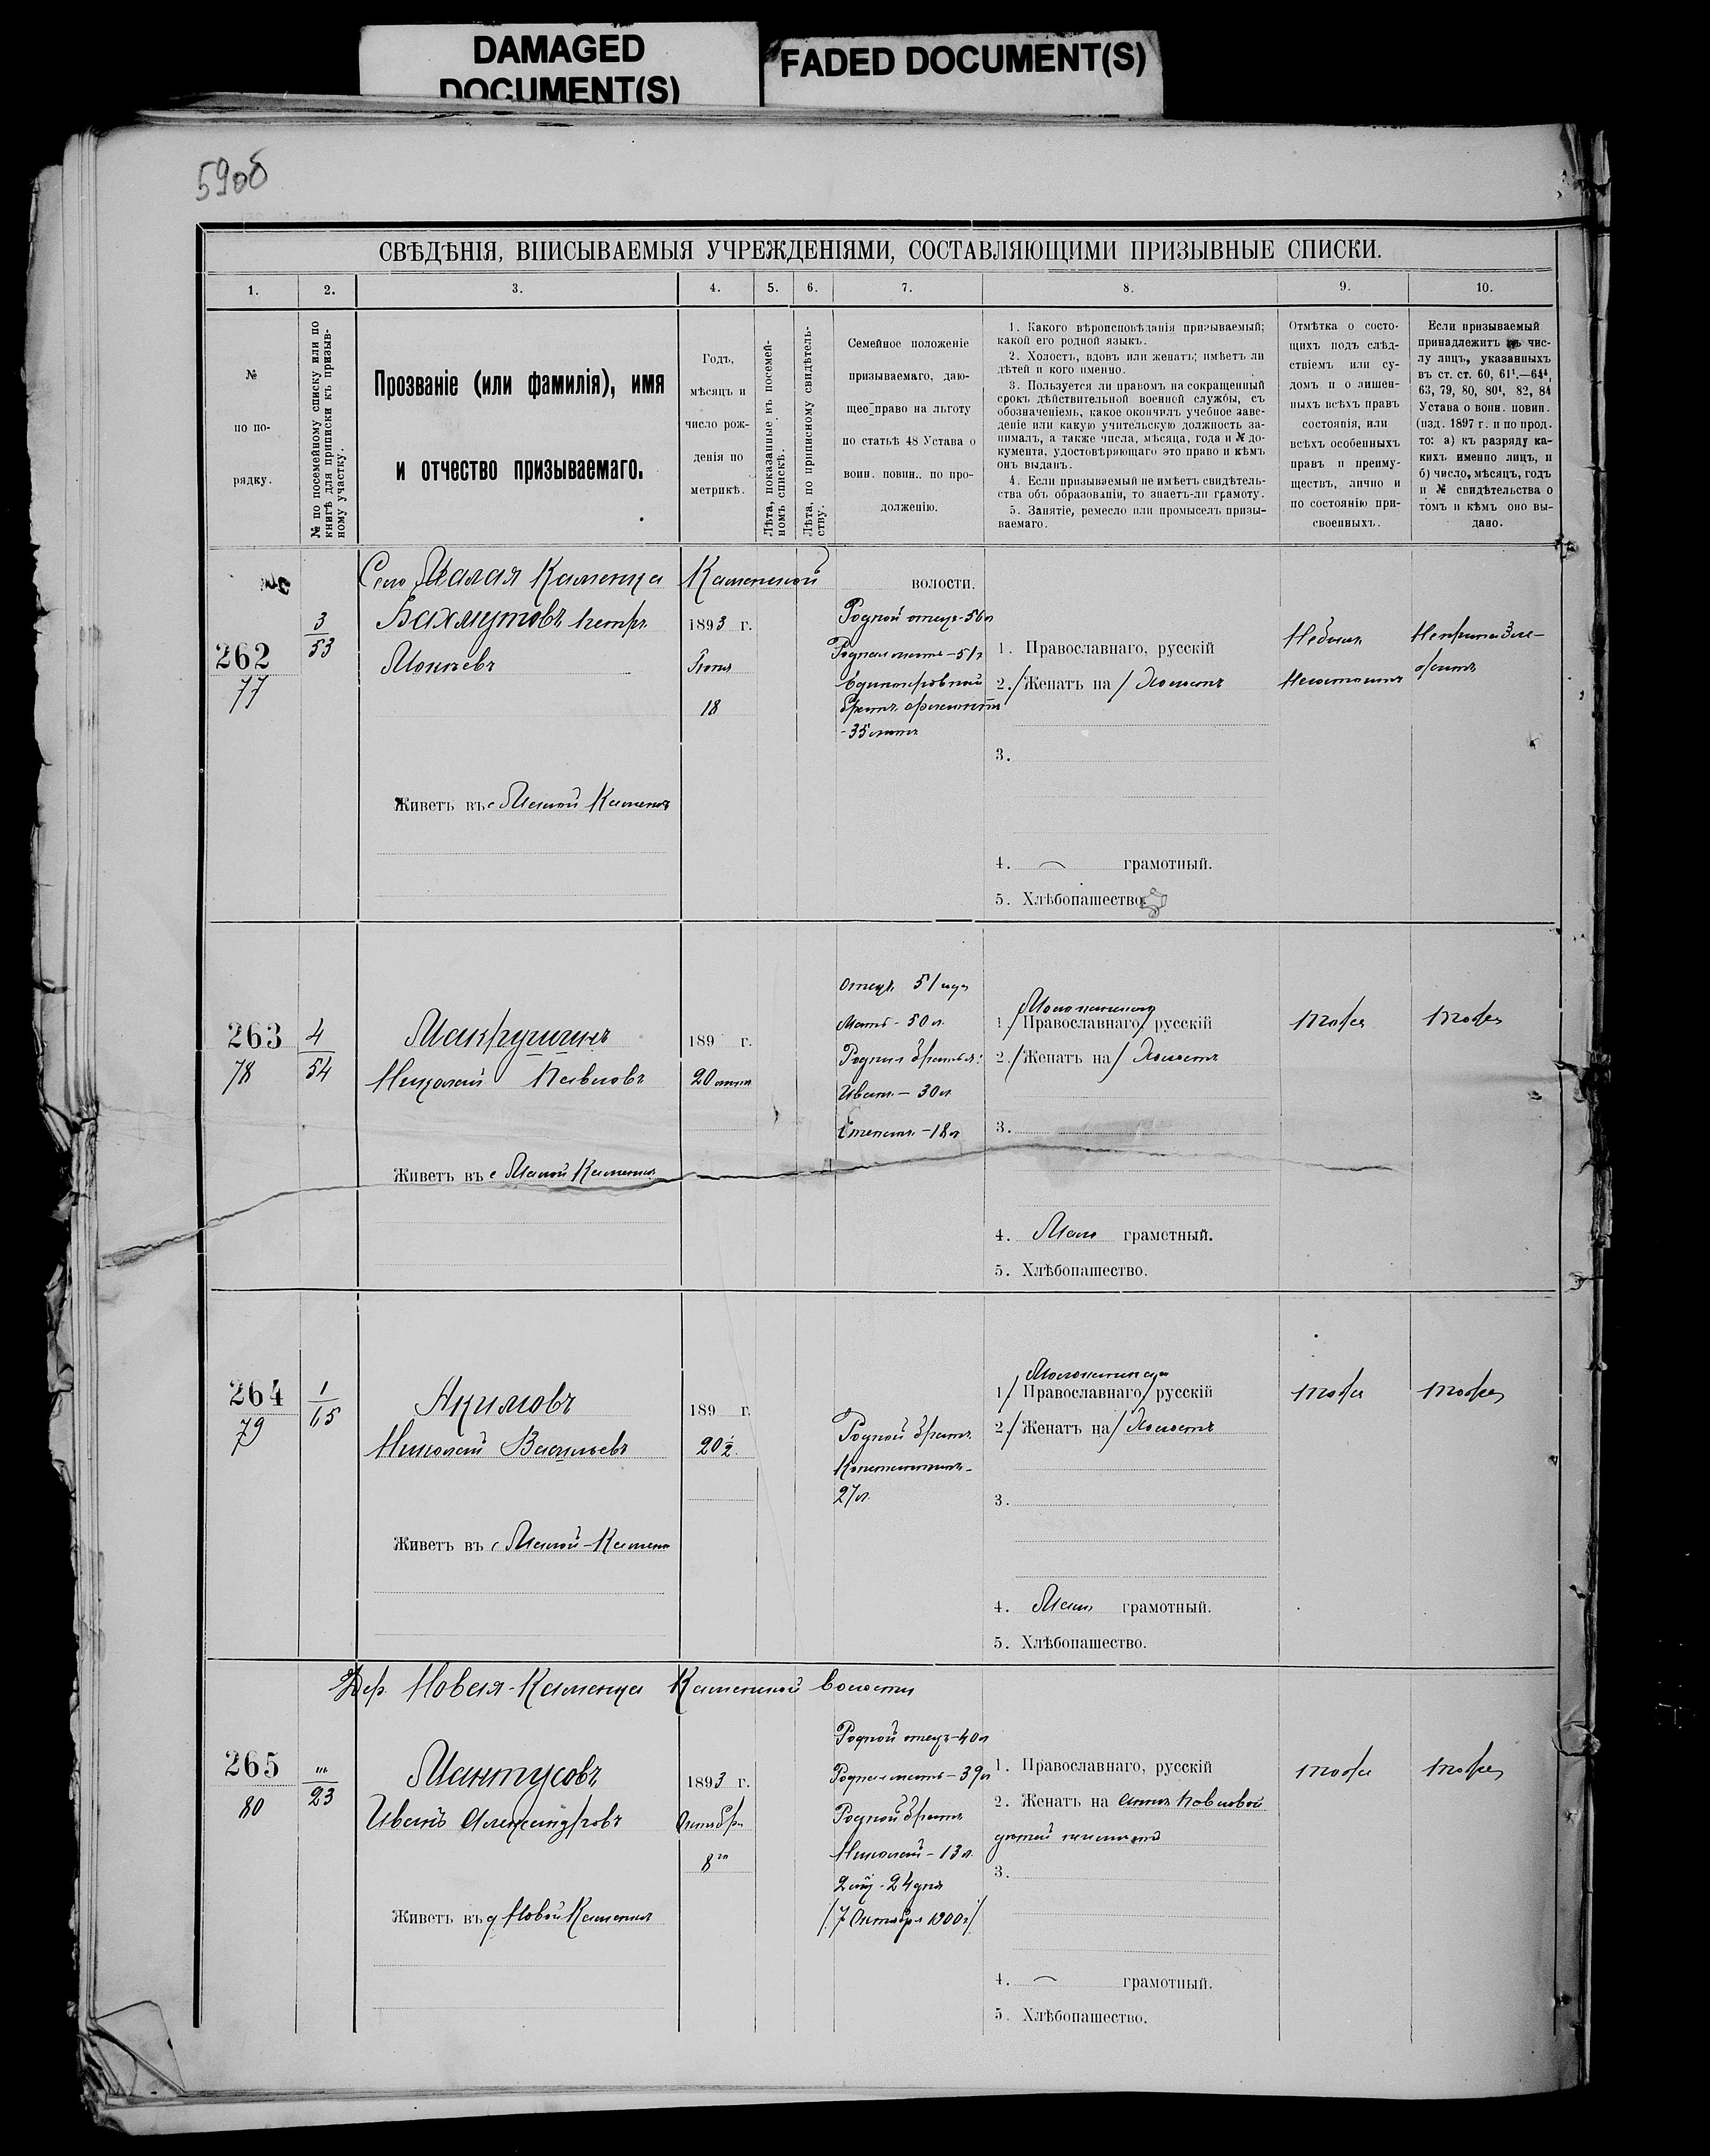 DAMAGED
DOCUMENT(S)
FADED DOCUMENT(S)
59об
СВѢДѢНІЯ, ВПИСЫВАЕМЫЯ УЧРЕЖДЕНІЯМИ, СОСТАВЛЯЮЩИМИ ПРИЗЫВНЫЕ СПИСКИ.
1. 2. 3. 4. 5. 6. 7. 8. 9. 10.
№
по по-
рядку.
№ по посемейному списку или по
книгѣ для приписки къ призыв-
ному участку.
Прозваніе (или фамилія), имя
и отчество призываемаго.
Годъ,
мѣсяцъ и
число рож-
денія по
метрикѣ.
Лѣта, показанные въ посемей-
номъ спискѣ.
Лѣта, по приписному свидѣтель-
ству.
Семейное положеніе
призываемаго, даю-
щее право на льготу
по статьѣ 48 Устава о
воин. повин. по про-
долженію.
1. Какого вѣроисповѣданія призываемый;
какой его родной языкъ.
2. Холостъ, вдовъ или женатъ; имѣетъ ли
дѣтей и кого именно.
3. Пользуется ли правомъ на сокращенный
срокъ дѣйствительной военной службы, съ
обозначеніемъ, какое окончилъ учебное заве-
деніе или какую учительскую должность за-
нималъ, а также числа, мѣсяца, года и № до-
кумента, удостовѣряющаго это право и кѣмъ
онъ выданъ.
4. Если призываемый не имѣетъ свидѣтель-
ства объ образованіи, то знаетъ-ли грамоту.
5. Занятіе, ремесло или промыселъ призы-
ваемаго.
Отмѣтка о состо-
щихъ подъ слѣд-
ствіемъ или су-
домъ и о лишен-
ныхъ всѣхъ правъ
состоянія, или
всѣхъ особенныхъ
правъ и преиму-
ществъ, лично и
по состоянію при-
своенныхъ.
Если призываемый
принадлежитъ къ чис-
лу лицъ, указанныхъ
въ ст. ст. 60, 61¹,—64⁴,
63, 79, 80, 80¹, 82, 84
Устава о воин. повин.
(изд. 1897 г. и по прод.
то: а) къ разряду ка-
кихъ именно лицъ, и
б) число, мѣсяцъ, годъ
и № свидѣтельства о
томъ и кѣмъ оно вы-
дано.
Село Малая Каменка Каменской волости.
262
77
3
53
Бахмутовъ Петръ
Живетъ въ с Малой Каменкѣ
1893 г.
18
Родной отецъ-56л
Родная мать-51г
Единокровный
братъ
-35лѣтъ
1. Православнаго, русскій
2. /Женатъ на/ Холостъ
3.
4. грамотный.
5. Хлѣбопашество.
Не былъ
Не состоитъ
Не принадле-
житъ
263
78
4
54
Николай Павловъ
Живетъ въ с Малой Каменкѣ
189 г.
20 лѣтъ
Отецъ 51 годъ
Мать - 50 л.
Родныя братья:
Иванъ - 30л.
Степанъ - 18л
Молоканскаго
1. /Православнаго/ русскій
2. /Женатъ на/ Холостъ
3.
4. Мало грамотный.
5. Хлѣбопашество.
тоже
тоже
264
79
1
65
Акимовъ
Николай Васильевъ
Живетъ въ с Малой-Каменкѣ
189 г.
20½
Родной братъ
Константинъ-
27л.
Молоканскаго
1/ Православнаго/ русскій
2. /Женатъ на/ Холостъ
3.
4. Мало грамотный.
5. Хлѣбопашество.
тоже
тоже
Дер. Новая-Каменка Каменской волости
265
80
23
Мантусовъ
Иванъ Александровъ
Живетъ въ д Новой Каменкѣ
1893 г.
Октября
8го
Родной отецъ-40л
Родная мать-39л
Родной братъ
Николай - 13л.
2 мѣ. 24 дня
/7 Октября 1900г/
1. Православнаго, русскій
2. Женатъ на Аннѣ Павловой
дѣтей не имѣетъ
3.
4. грамотный.
5. Хлѣбопашество.
тоже
тоже